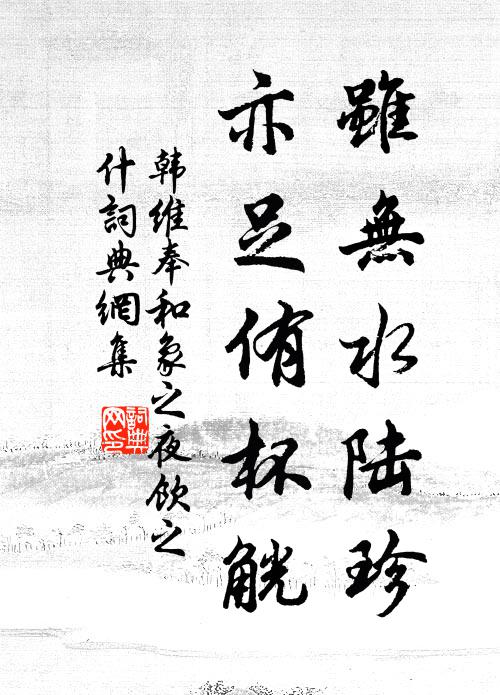 雖無水陸珍
亦足侑杯觥
韩維奉和象之夜飲之
什詞典網集
詞典
网印